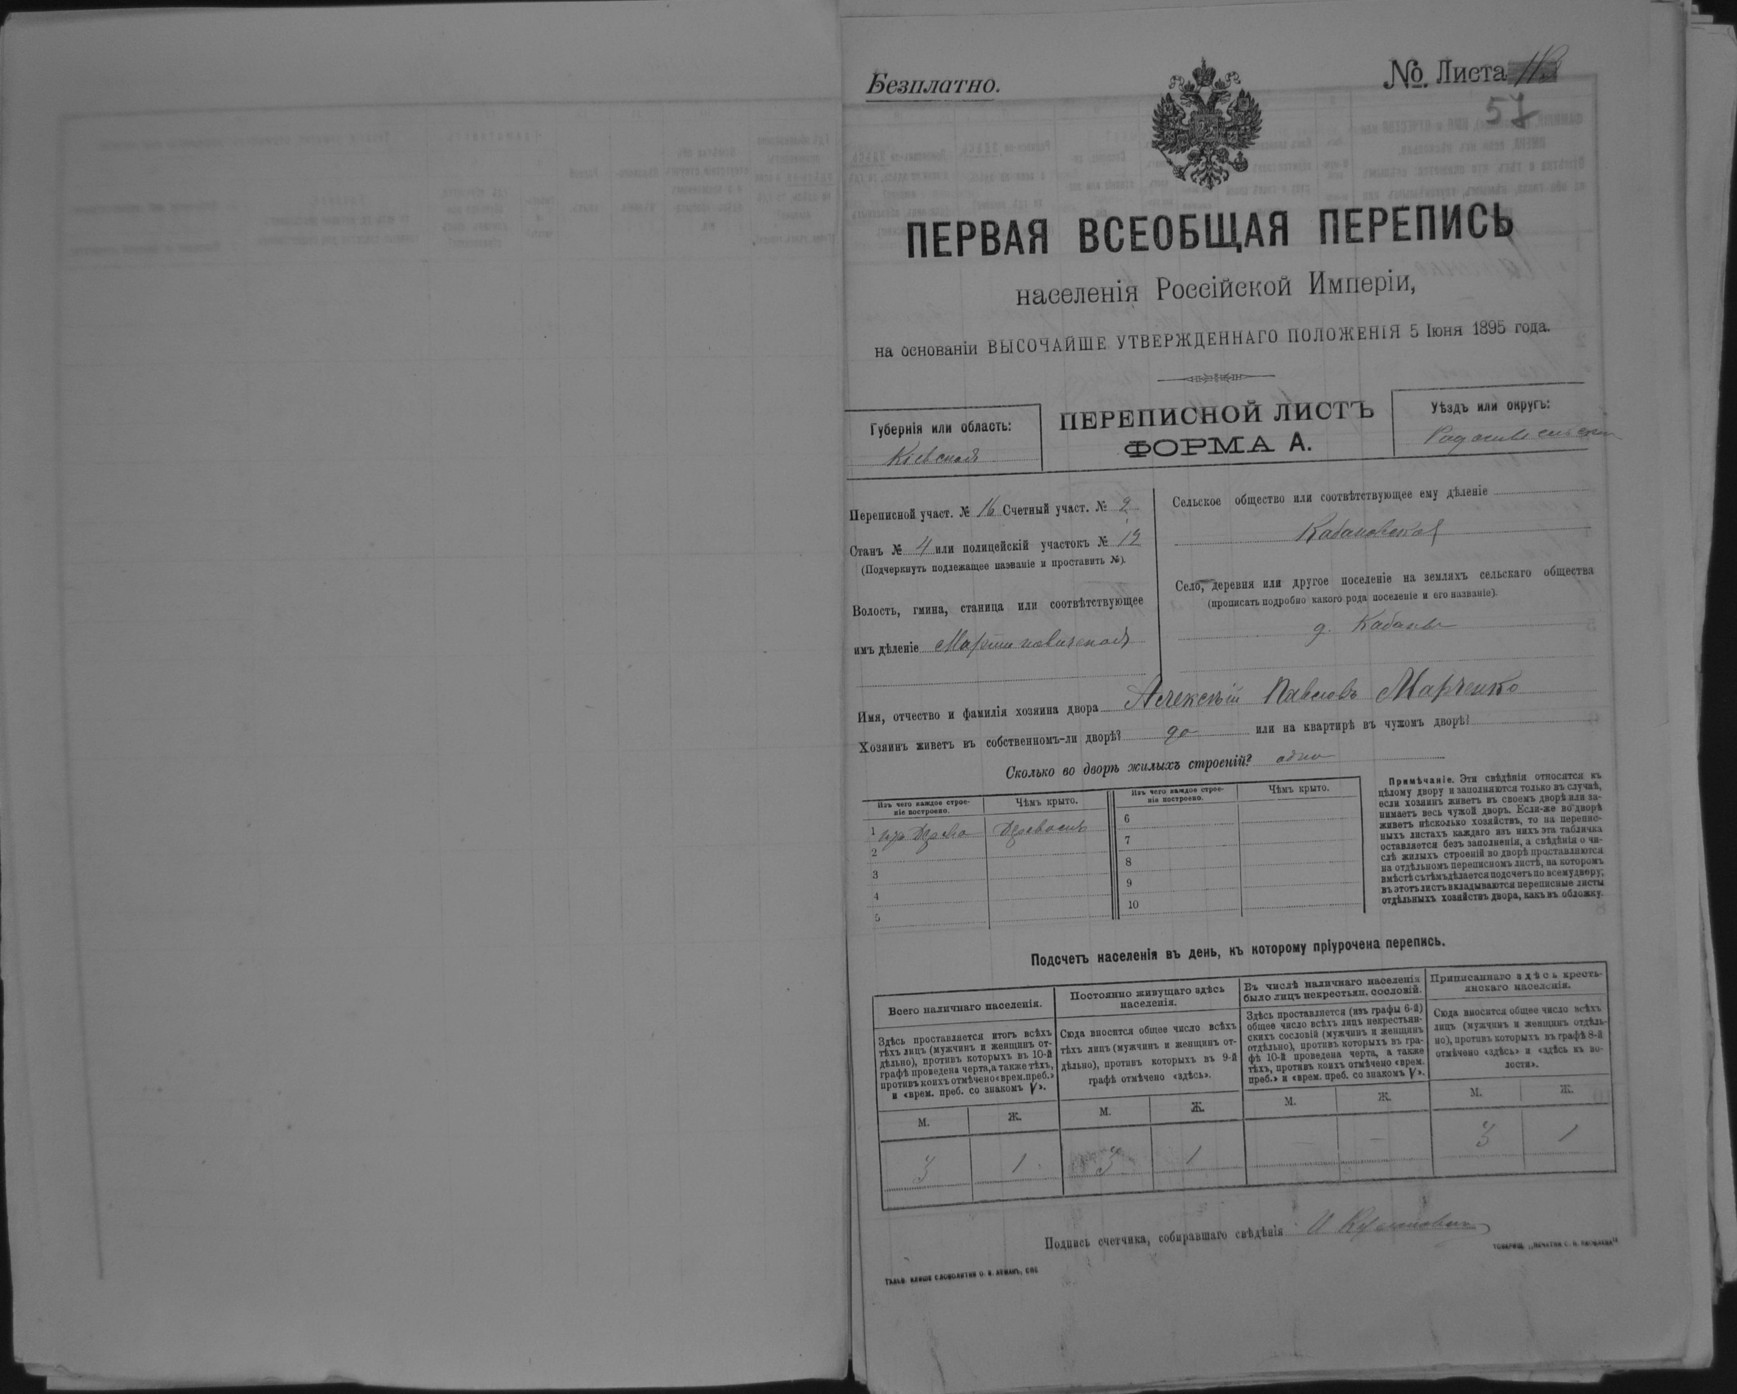 Безплатно.
№ Листа
57
ПЕРВАЯ ВСЕОБЩАЯ ПЕРЕПИСЬ
населенія Россійской Имперіи,
на основаніи ВЫСОЧАЙШЕ УТВЕРЖДЕННАГО ПОЛОЖЕНІЯ 5 Іюня 1895 года.
Губернія или область:
Кіевская
ПЕРЕПИСНОЙ ЛИСТЪ
ФОРМА А.
Уѣздъ или округъ:
Радомысльскій
Переписной участ. № 16 Счетный участ. № 2
Станъ № 4 или полицейскій участокъ № 12
(Подчеркнуть подлежащее названіе и проставить №).
Волость, гмина, станица или соотвѣтствующее
имъ дѣленіе Мартиновичская
Сельское общество или соотвѣтствующее ему дѣленіе
Кабановское
Село, деревня или другое поселеніе на земляхъ сельскаго общества
(прописать подробно какого рода поселеніе и его названіе).
д. Кабаны
Имя, отчество и фамилія хозяина двора Алексѣй Павловъ Марченко
Хозяинъ живетъ въ собственномъ-ли дворѣ? да или на квартирѣ въ чужомъ дворѣ?
Сколько во дворѣ жилыхъ строеній? одно
Изъ чего каждое строе-
ніе построено.
Чѣмъ крыто.
Изъ чего каждое строе-
ніе построено.
Чѣмъ крыто.
1 изъ дерева деревомъ
2
3
4
5
6
7
8
9
10
Примѣчаніе. Эти свѣдѣнія относятся къ
цѣлому двору и заполняются только въ случаѣ,
если хозяинъ живетъ въ своемъ дворѣ или за-
нимаетъ весь чужой дворъ. Если-же во дворѣ
живетъ нѣсколько хозяйствъ, то на перепис-
ныхъ листахъ каждаго изъ нихъ эта табличка
оставляется безъ заполненія, а свѣдѣнія о чи-
слѣ жилыхъ строеній во дворѣ проставляются
на отдѣльномъ переписномъ листѣ, на которомъ
вмѣстѣ съ тѣмъ дѣлается подсчетъ по всему двору;
въ этотъ листъ вкладываются переписные листы
отдѣльныхъ хозяйствъ двора, какъ въ обложку.
Подсчетъ населенія въ день, къ которому пріурочена перепись.
Всего наличнаго населенія.
Здѣсь проставляется итогъ всѣхъ
тѣхъ лицъ (мужчинъ и женщинъ от-
дѣльно), противъ которыхъ въ 10-й
графѣ проведена черта, а также тѣхъ,
противъ коихъ отмѣчено «врем. преб.»
и «врем. преб. со знакомъ V».
М. Ж.
3 1
Постоянно живущаго здѣсь
населенія.
Сюда вносится общее число всѣхъ
тѣхъ лицъ (мужчинъ и женщинъ от-
дѣльно), противъ которыхъ въ 9-й
графѣ отмѣчено «здѣсь».
М. Ж.
3 1
Въ числѣ наличнаго населенія
было лицъ некрестьян. сословій.
Здѣсь проставляется (изъ графы 6-й)
общее число всѣхъ лицъ некрестьян-
скихъ сословій (мужчинъ и женщинъ
отдѣльно), противъ которыхъ въ гра-
фѣ 10-й проведена черта, а также
тѣхъ, противъ коихъ отмѣчено «врем.
преб.» и «врем. преб. со знакомъ V».
М. Ж.
— —
Приписаннаго здѣсь кресть-
янскаго населенія.
Сюда вносится общее число всѣхъ
лицъ (мужчинъ и женщинъ отдѣль-
но), противъ которыхъ въ графѣ 8-й
отмѣчено «здѣсь» и «здѣсь въ во-
лости».
М. Ж.
3 1
Подпись счетчика, собиравшаго свѣдѣнія